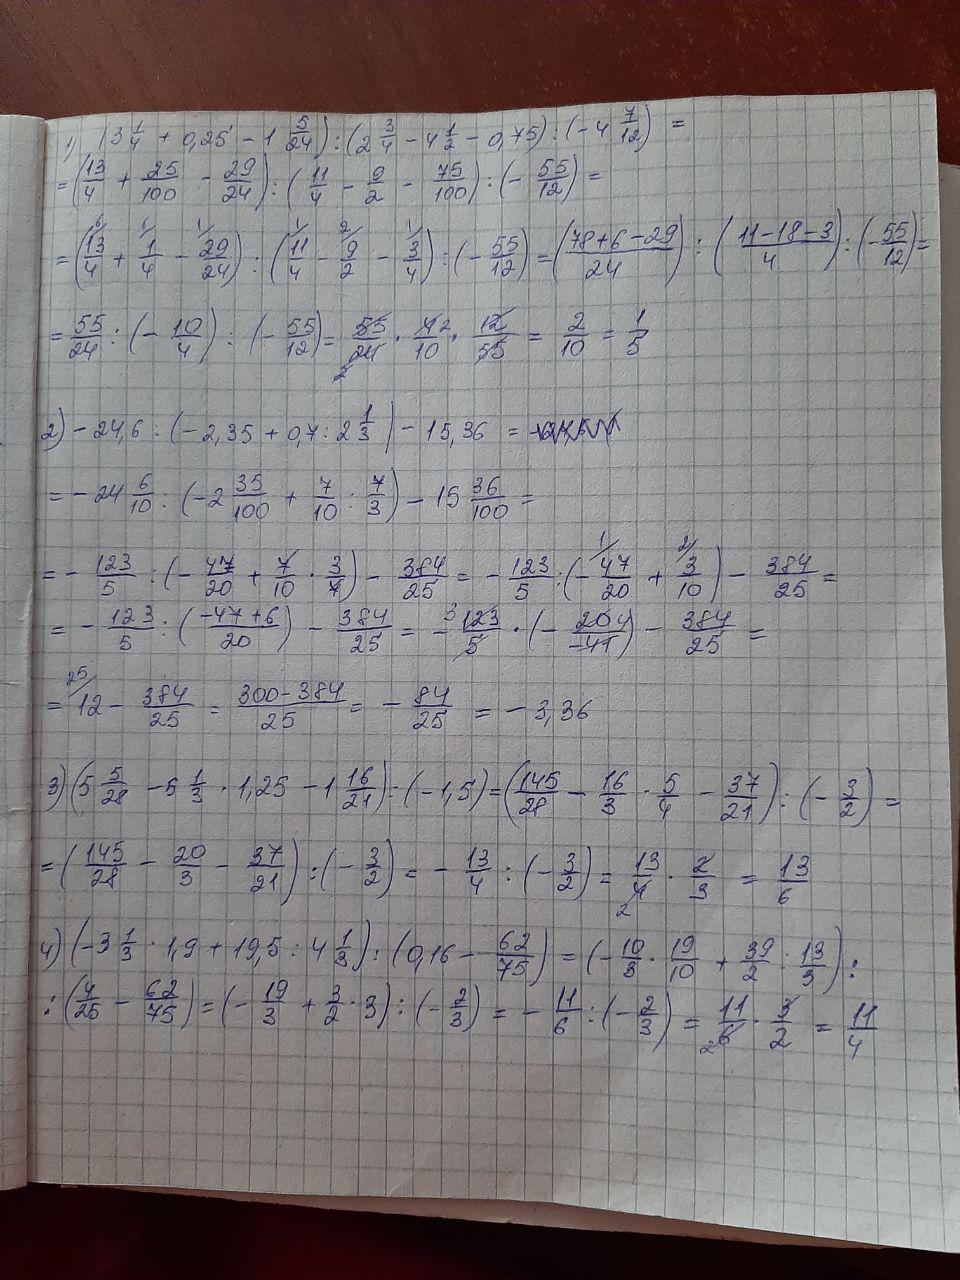 1) (3 1/4 + 0,25 - 1 5/24) : (2 3/4 - 4 1/2 - 0,75) : (-4 7/12) =
= (13/4 + 25/100 - 29/24) : (11/4 - 9/2 - 75/100) : (-55/12) =
= (13/4 + 1/4 - 29/24) : (11/4 - 9/2 - 3/4) : (-55/12) = (78+6-29/24) : (11-18-3/4) : (-55/12) =
= 55/24 : (-10/4) : (-55/12) = 55/24 · 4/10 · 12/55 = 2/10 = 1/5
2) - 24,6 : (-2,35 + 0,7 : 2 1/3) - 15,36 =
= - 24 6/10 : (-2 35/100 + 7/10 : 7/3) - 15 36/100 =
= - 123/5 : (-47/20 + 7/10 · 3/7) - 384/25 = - 123/5 : (-47/20 + 3/10) - 384/25 =
= - 123/5 : (-47+6/20) - 384/25 = - 123/5 · (-20/-41) - 384/25 =
= 12 - 384/25 = 300-384/25 = - 84/25 = - 3,36
3) (5 5/28 - 5 1/3 · 1,25 - 1 16/21) : (-1,5) = (145/28 - 16/3 · 5/4 - 37/21) : (-3/2) =
= (145/28 - 20/3 - 37/21) : (-3/2) = - 13/4 : (-3/2) = 13/4 · 2/3 = 13/6
4) (-3 1/3 · 1,9 + 19,5 : 4 1/3) : (0,16 - 62/75) = (-10/3 · 19/10 + 39/2 : 13/3) :
: (4/25 - 62/75) = (-19/3 + 3/2 · 3) : (-2/3) = - 11/6 : (-2/3) = 11/6 · 3/2 = 11/4